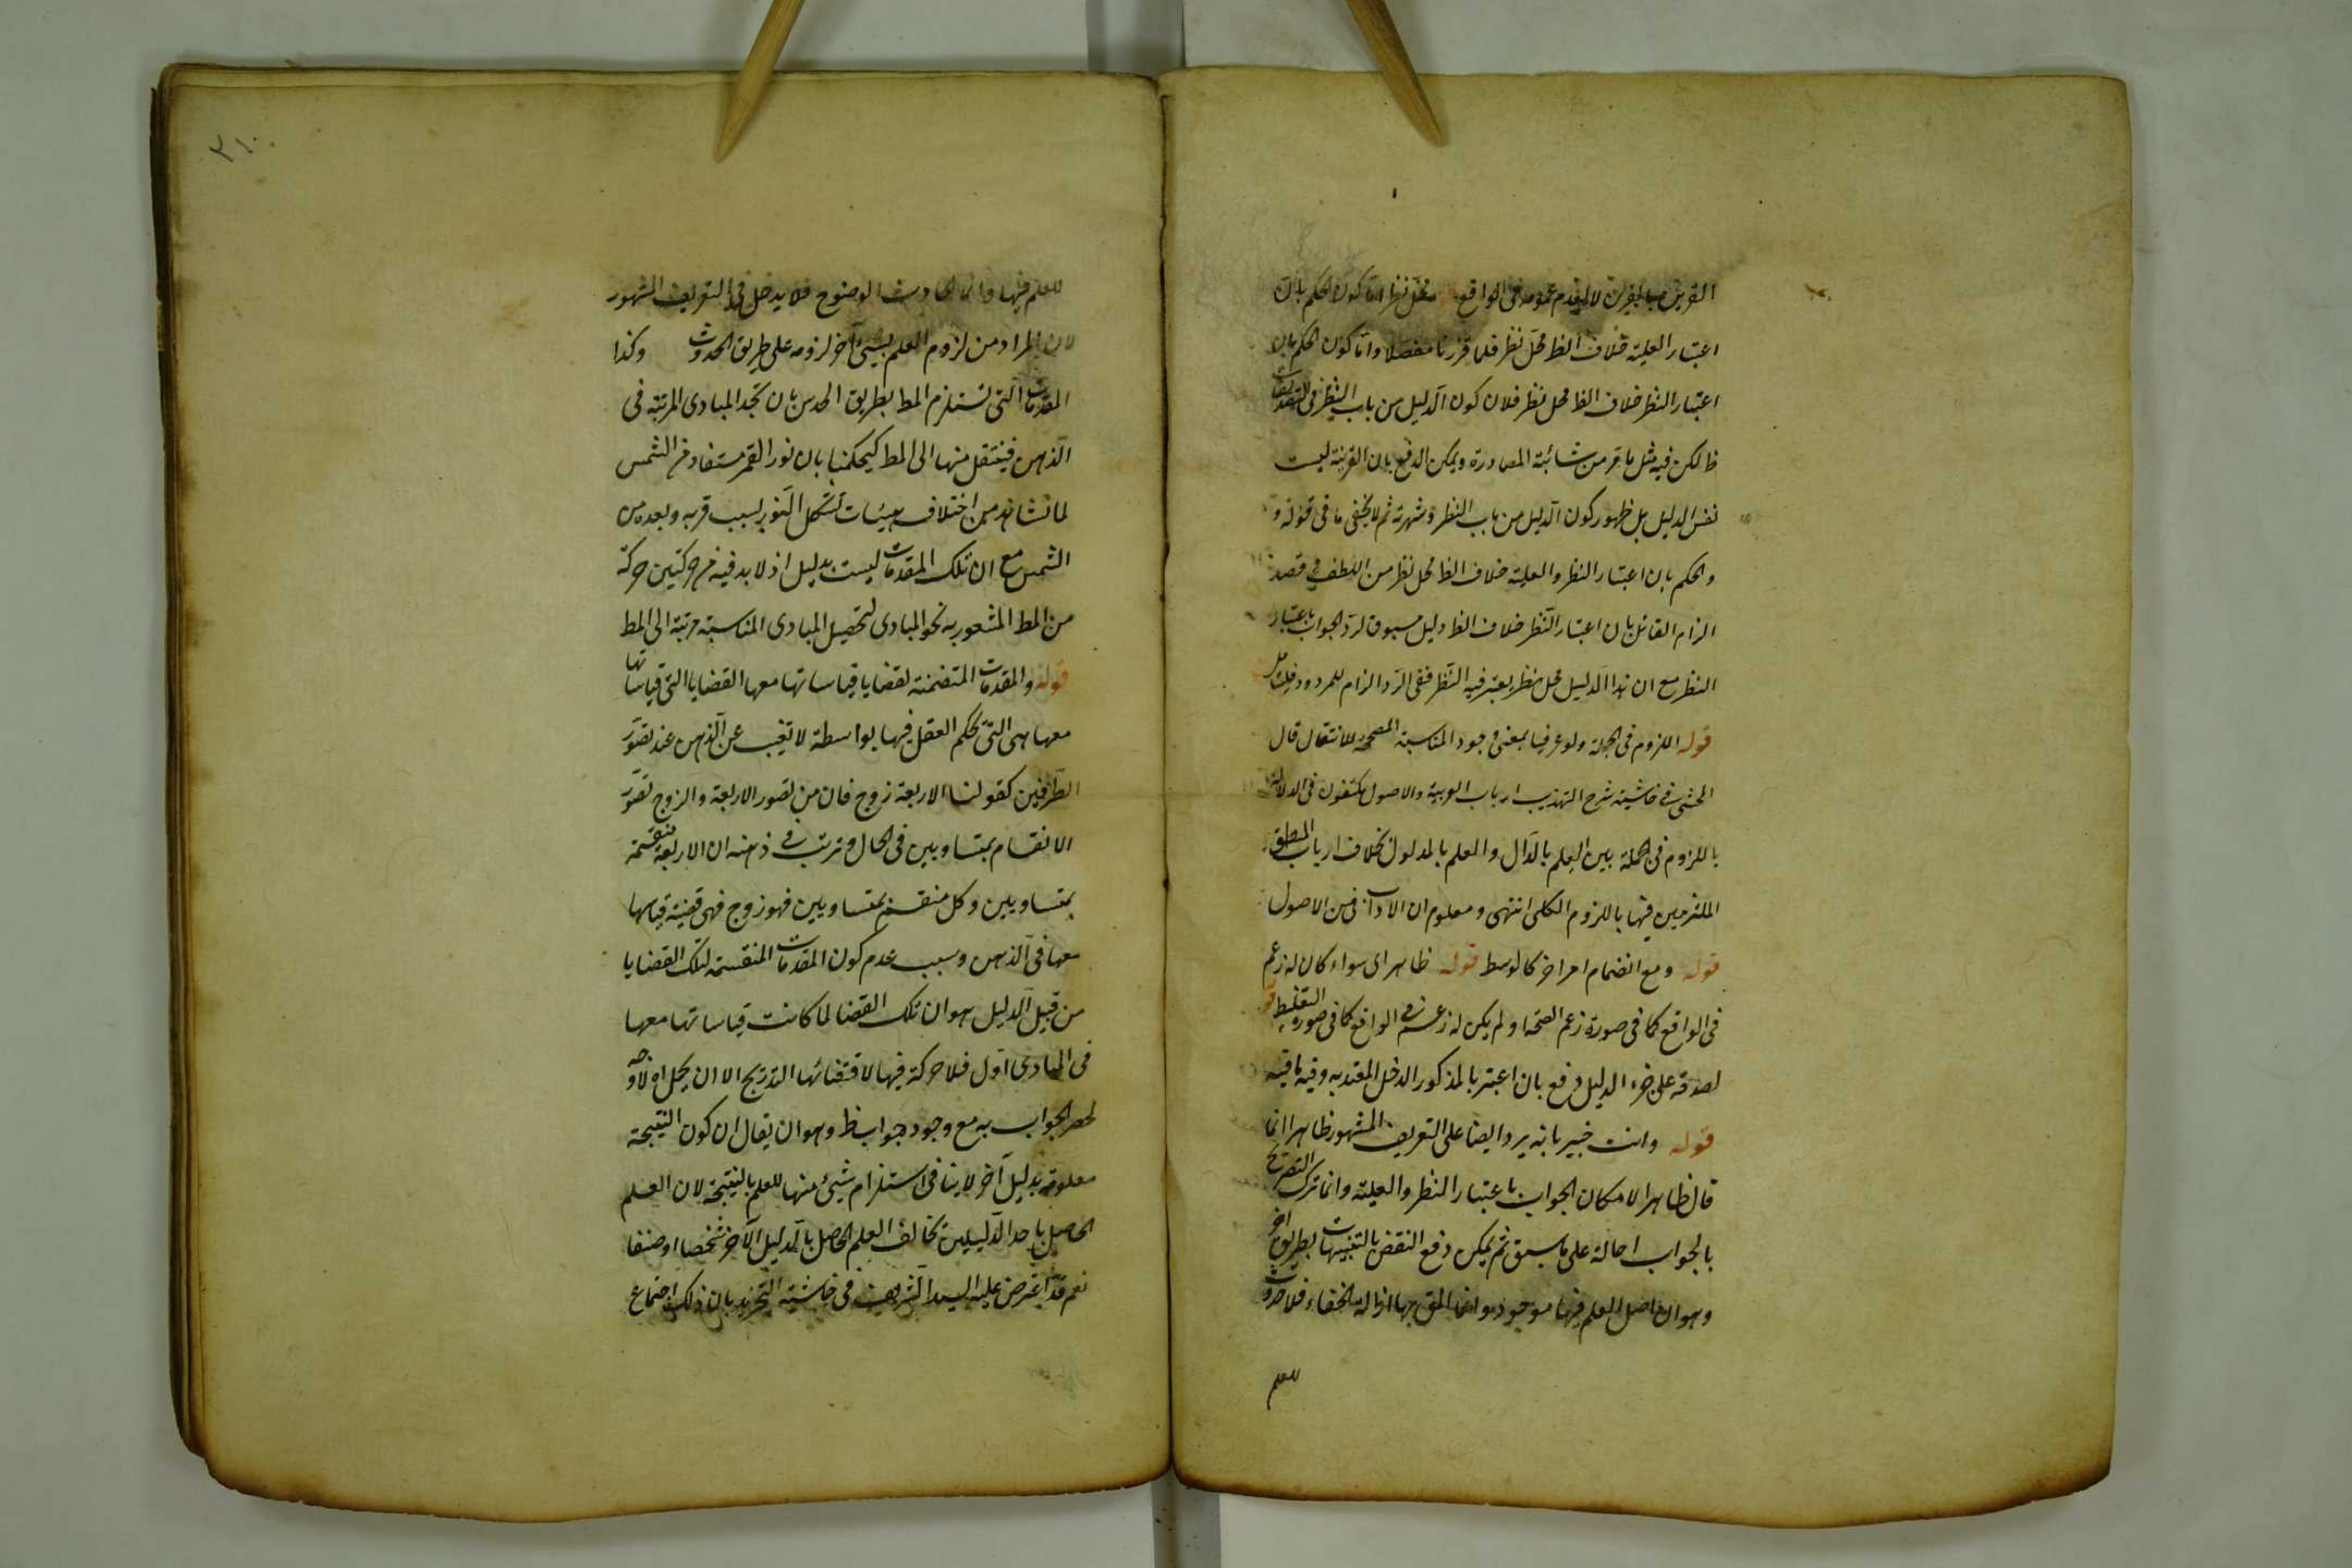 القرينة لا لعدم عمومه في الواقع محل نظر اما كون الحكم بان
اعتبار العلية خلاف الظ محل نظر فلما قررنا مفصلا واما كون الحكم بان
اعتبار النظر خلاف الظ محل نظر فلان كون الدليل من باب النظر في التصديقات
ظ لكن فيه مثل ما مر من شائبة المصادرة ويمكن الدفع بان القرينة ليست
نفس الدليل بل ظهور كون الدليل من باب النظر وشهرته ثم لا يخفى ما في قوله و
والحكم بان اعتبار النظر والعلية خلاف الظ محل نظر من اللطف في قصد
الزام القائل بان اعتبار النظر خلاف الظ دليل مسبوق لرد الجواب باعتبار
النظر مع ان هذا الدليل محل نظر يعتبر فيه النظر ففي الرد الزام للمردود فليتأمل
قوله اللزوم في الجملة ولو عرفيا بمعنى وجود المناسبة المصححة للانتقال قال
المحشي في حاشية شرح التهذيب ارباب العربية والاصول يكتفون في الدلالة
باللزوم في الجملة بين العلم بالدال والعلم بالمدلول بخلاف ارباب المنطق
الملتزمين فيها باللزوم الكلي انتهى ومعلوم ان الاداب من الاصول
قوله ومع انضمام امر اخر كالوسط قوله ظاهر اى سواء كان له زعم
في الواقع كما في صورة زعم الصحة او لم يكن له زعم في الواقع كما في صورة التغليط قو
لصدقه على جزء الدليل دفع بان اعتبر بالمذكور الدخل المعتد به وفيه ما فيه
قوله وانت خبير بانه يرد ايضا على التعريف المشهور ظاهرا انما
قال ظاهرا لامكان الجواب باعتبار النظر والعلية وانما ترك التصريح
بالجواب احالة على ما سبق ثم يمكن دفع النقض بالتنبيهات بطريق اخر
وهو ان اصل العلم فيها موجود وانما المق بها ازالة الخفاء فلا حدوث
للعلم
٣١٠
للعلم فيها وانما الحادث الوضوح فلا يدخل في التعريف المشهور
لان المراد من لزوم العلم بشيئ آخر لزومه على طريق الحدوث وكذا
المقدمات التي تستلزم المط بطريق الحدس بان تجد المبادى المرتبة في
الذهن فينتقل منها الى المط كحكمنا بان نور القمر مستفاد من الشمس
لما نشاهد من اختلاف هيئات تشكل النور بسبب قربه وبعده من
الشمس مع ان تلك المقدمات ليست بدليل اذ لا بد فيه من حركتين حركة
من المط المشعور به نحو المبادى لتحصيل المبادى المناسبة مرتبة الى المط
قوله والمقدمات المتضمنة لقضايا قياساتها معها القضايا التي قياساتها
معها هى التي يحكم العقل فيها بواسطة لا تغيب عن الذهن عند تصور
الطرفين كقولنا الاربعة زوج فان من تصور الاربعة والزوج تصور
الانقسام بمتساويين في الحال وترتب في ذهنه ان الاربعة منقسمة
بمتساويين وكل منقسم بمتساويين فهو زوج فهى قضية قياسها
معها في الذهن وسبب عدم كون المقدمات المنقسمة لتلك القضايا
من قبيل الدليل هو ان تلك القضا لما كانت قياساتها معها
في المبادى اول فلا حركة فيها لاقتضائها التدريج الا ان يحمل اه لا وجه
لحصر الجواب به مع وجود جواب ظ وهو ان يقال ان كون النتيجة
معلومة بدليل آخر لا ينافي استلزام شيئ منها للعلم بالنتيجة لان العلم
الحاصل باحد الدليلين تخالف العلم الحاصل بالدليل الآخر شخصا او صنفا
نعم قد اعترض عليه السيد الشريف في حاشية التجريد بان ذلك اجتماع